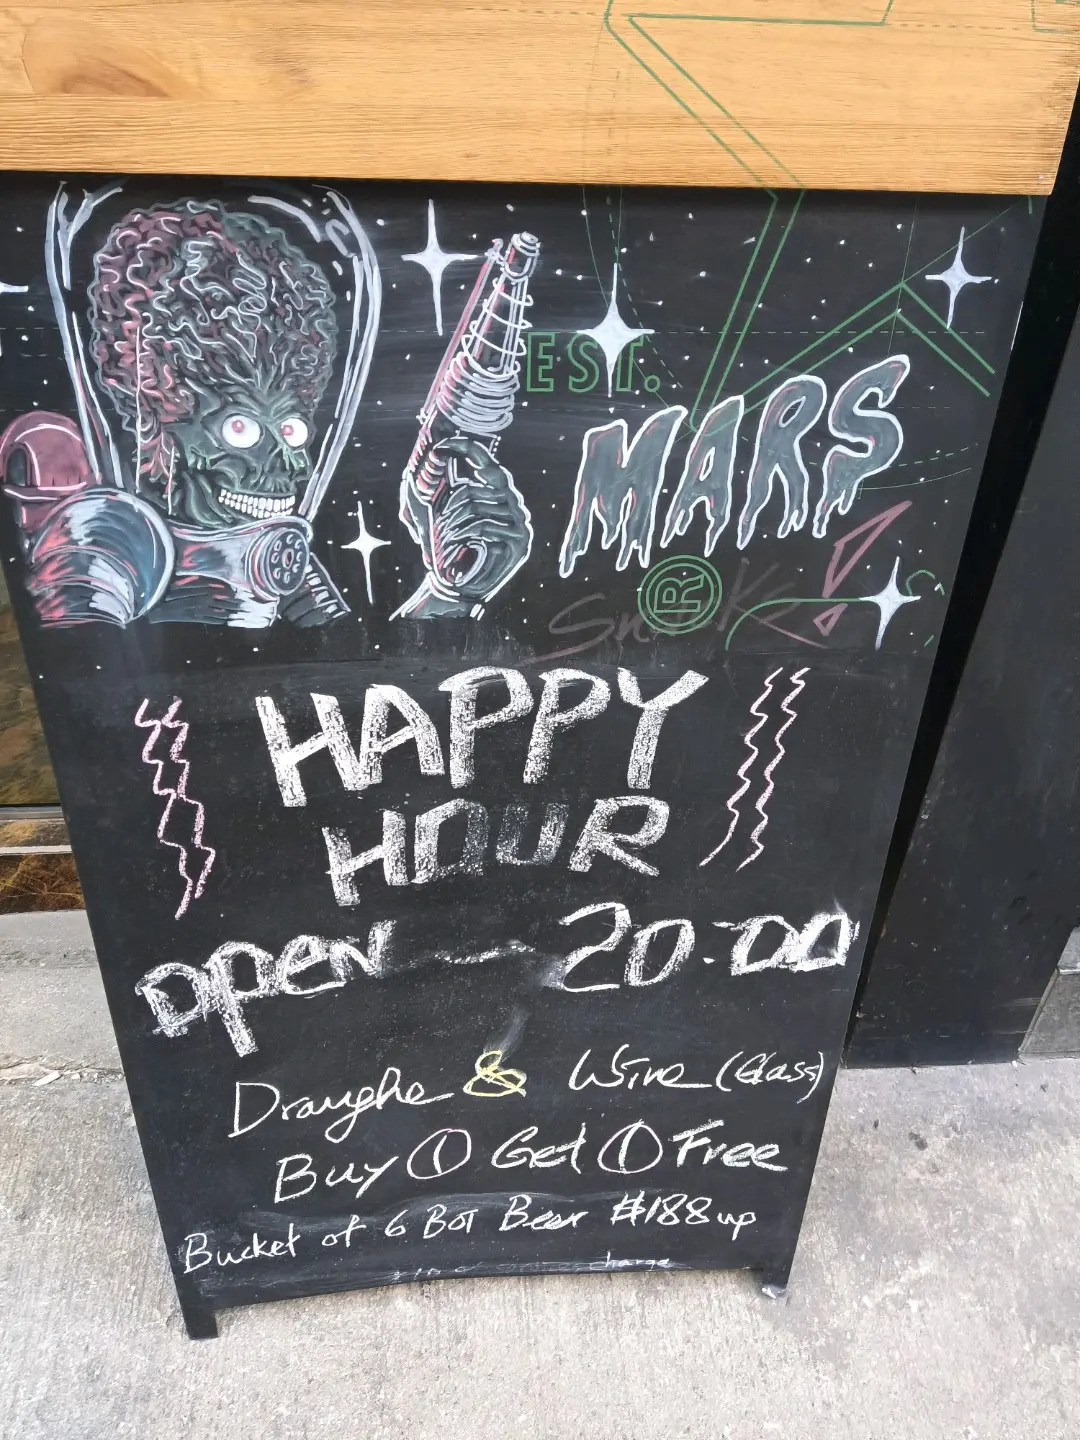 EST.
MARS
®
HAPPY
HOUR
OPEN - 20:00
Draughe & Wine (Glass)
Buy ① Get ① Free
Bucket of 6 BOT Beer $188 up
charge